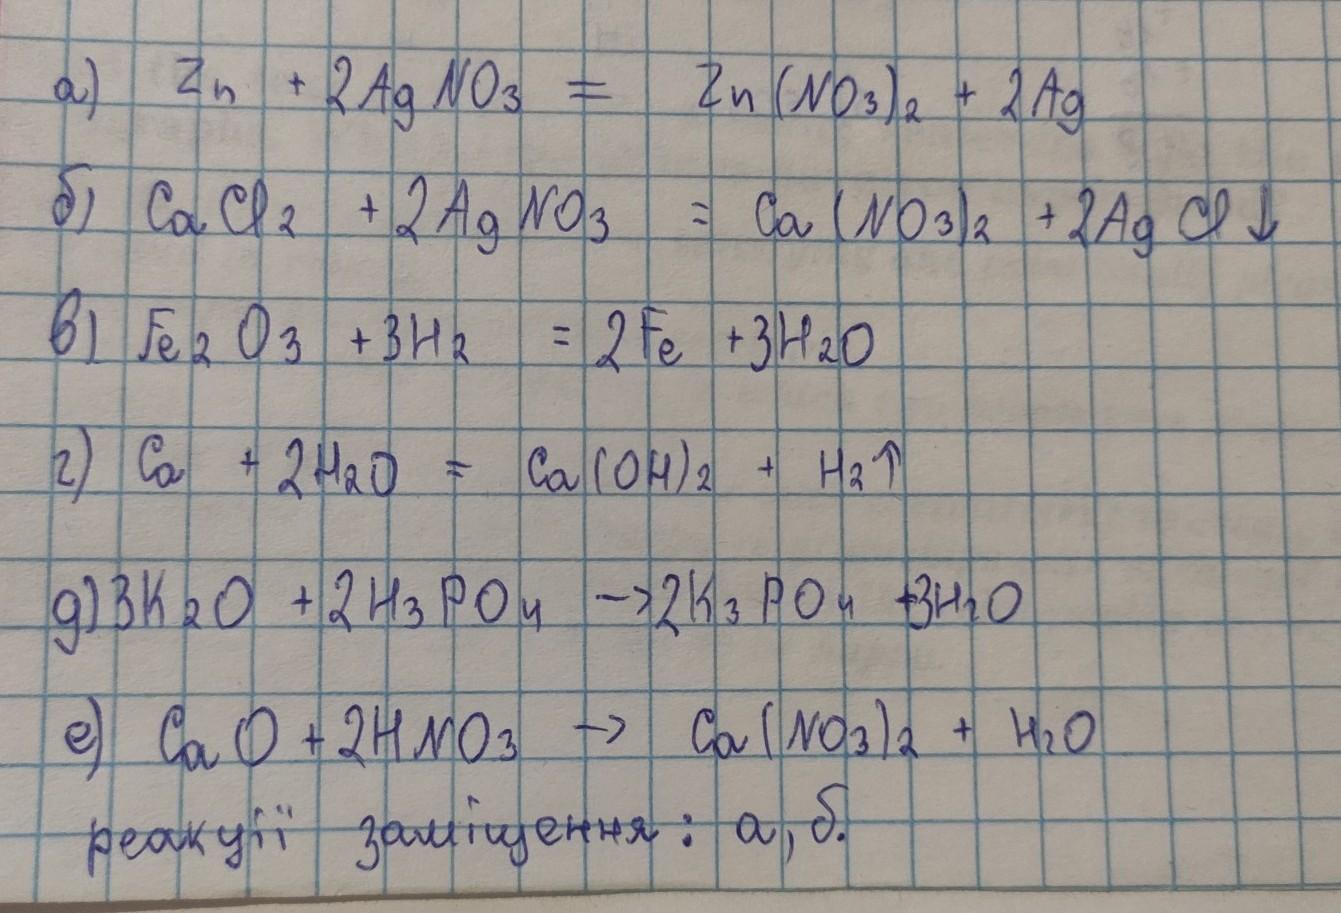 а) Zn + 2AgNO3 = Zn(NO3)2 + 2Ag
б) CaCl2 + 2AgNO3 = Ca(NO3)2 + 2AgCl↓
в) Fe2O3 + 3H2 = 2Fe + 3H2O
г) Ca + 2H2O = Ca(OH)2 + H2↑
д) 3K2O + 2H3PO4 → 2K3PO4 + 3H2O
е) CaO + 2HNO3 → Ca(NO3)2 + H2O
реакції заміщення: а, б.